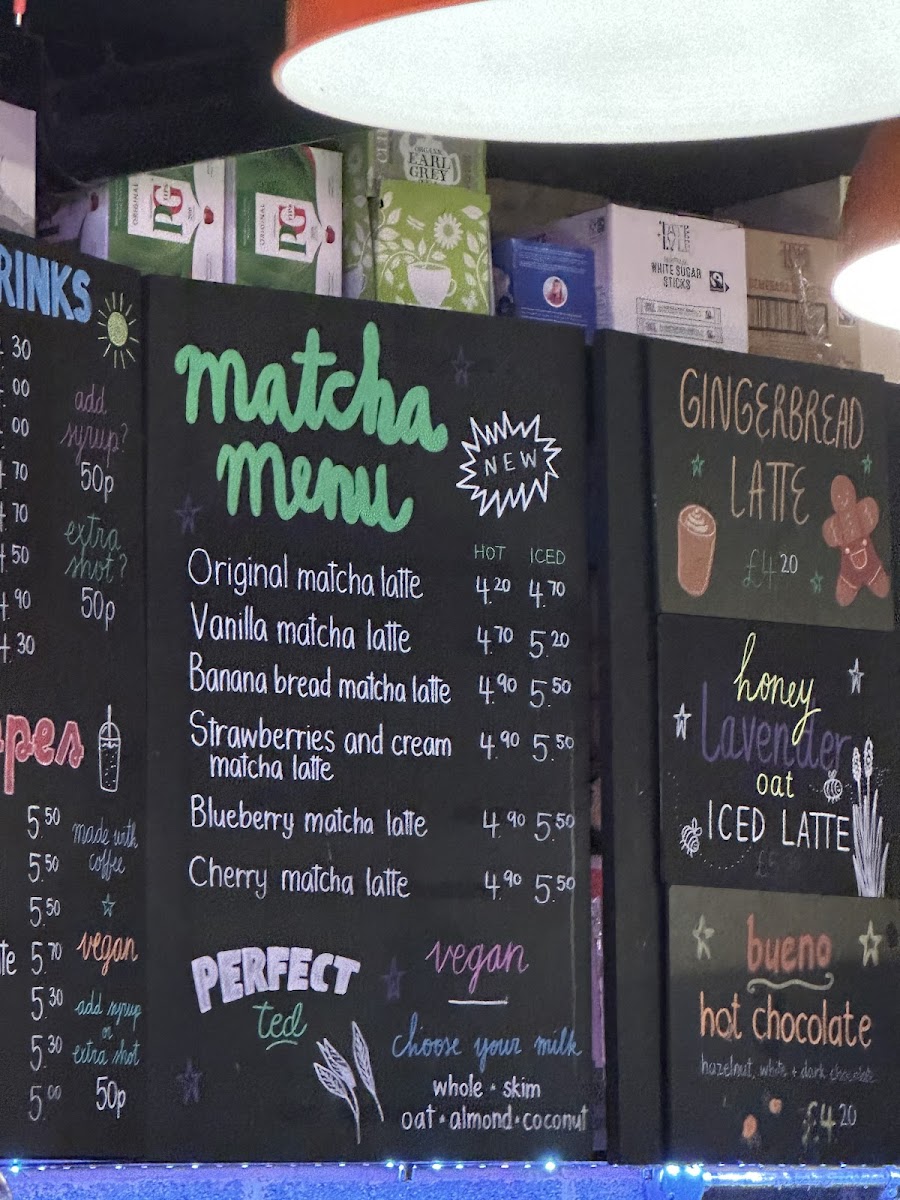 ORGANIC
EARL
GREY
ORIGINAL
PG
tips
ORIGINAL
PG
tips
TATE
LYLE
WHITE SUGAR
STICKS
RINKS
30
00
00
70
70
50
90
30
add
syrup?
50p
extra
shot?
50p
pes
5.50
5.50
5.50
5.70
5.30
5.30
5.00
made with
coffee
vegan
add syrup
or
extra shot
50p
matcha
menu
NEW
HOT ICED
Original matcha latte 4.20 4.70
Vanilla matcha latte 4.70 5.20
Banana bread matcha latte 4.90 5.50
Strawberries and cream 4.90 5.50
matcha latte
Blueberry matcha latte 4.90 5.50
Cherry matcha latte 4.90 5.50
PERFECT
ted
vegan
choose your milk
whole • skim
oat • almond • coconut
GINGERBREAD
LATTE
£4.20
honey
Lavender
oat
ICED LATTE
bueno
hot chocolate
hazelnut, white + dark chocolate
£4.20